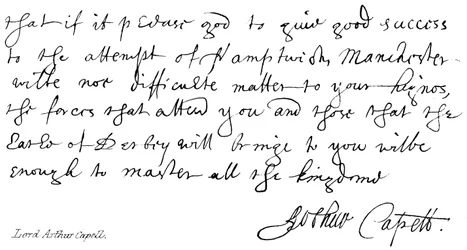 that if it please god to give good success
to the attempt of Namptwich, Manchester
wilbe noe difficulte matter to your
the forces that attend you and those that the
Earle of Derbey will bringe to you wilbe
enough to master all the kingdome
Arthur Capell.
Lord Arthur Capell.